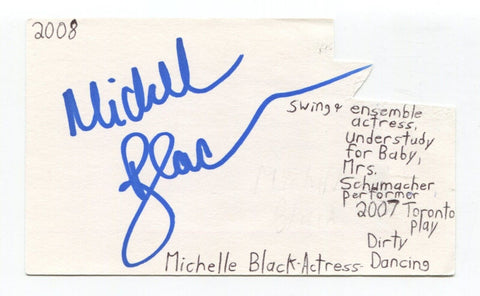 2008
Michelle
Black
swing & ensemble
actress,
understudy
for Baby,
Mrs.
Schumacher,
performer
2007 Toronto
play
Dirty
Michelle Black-Actress- Dancing